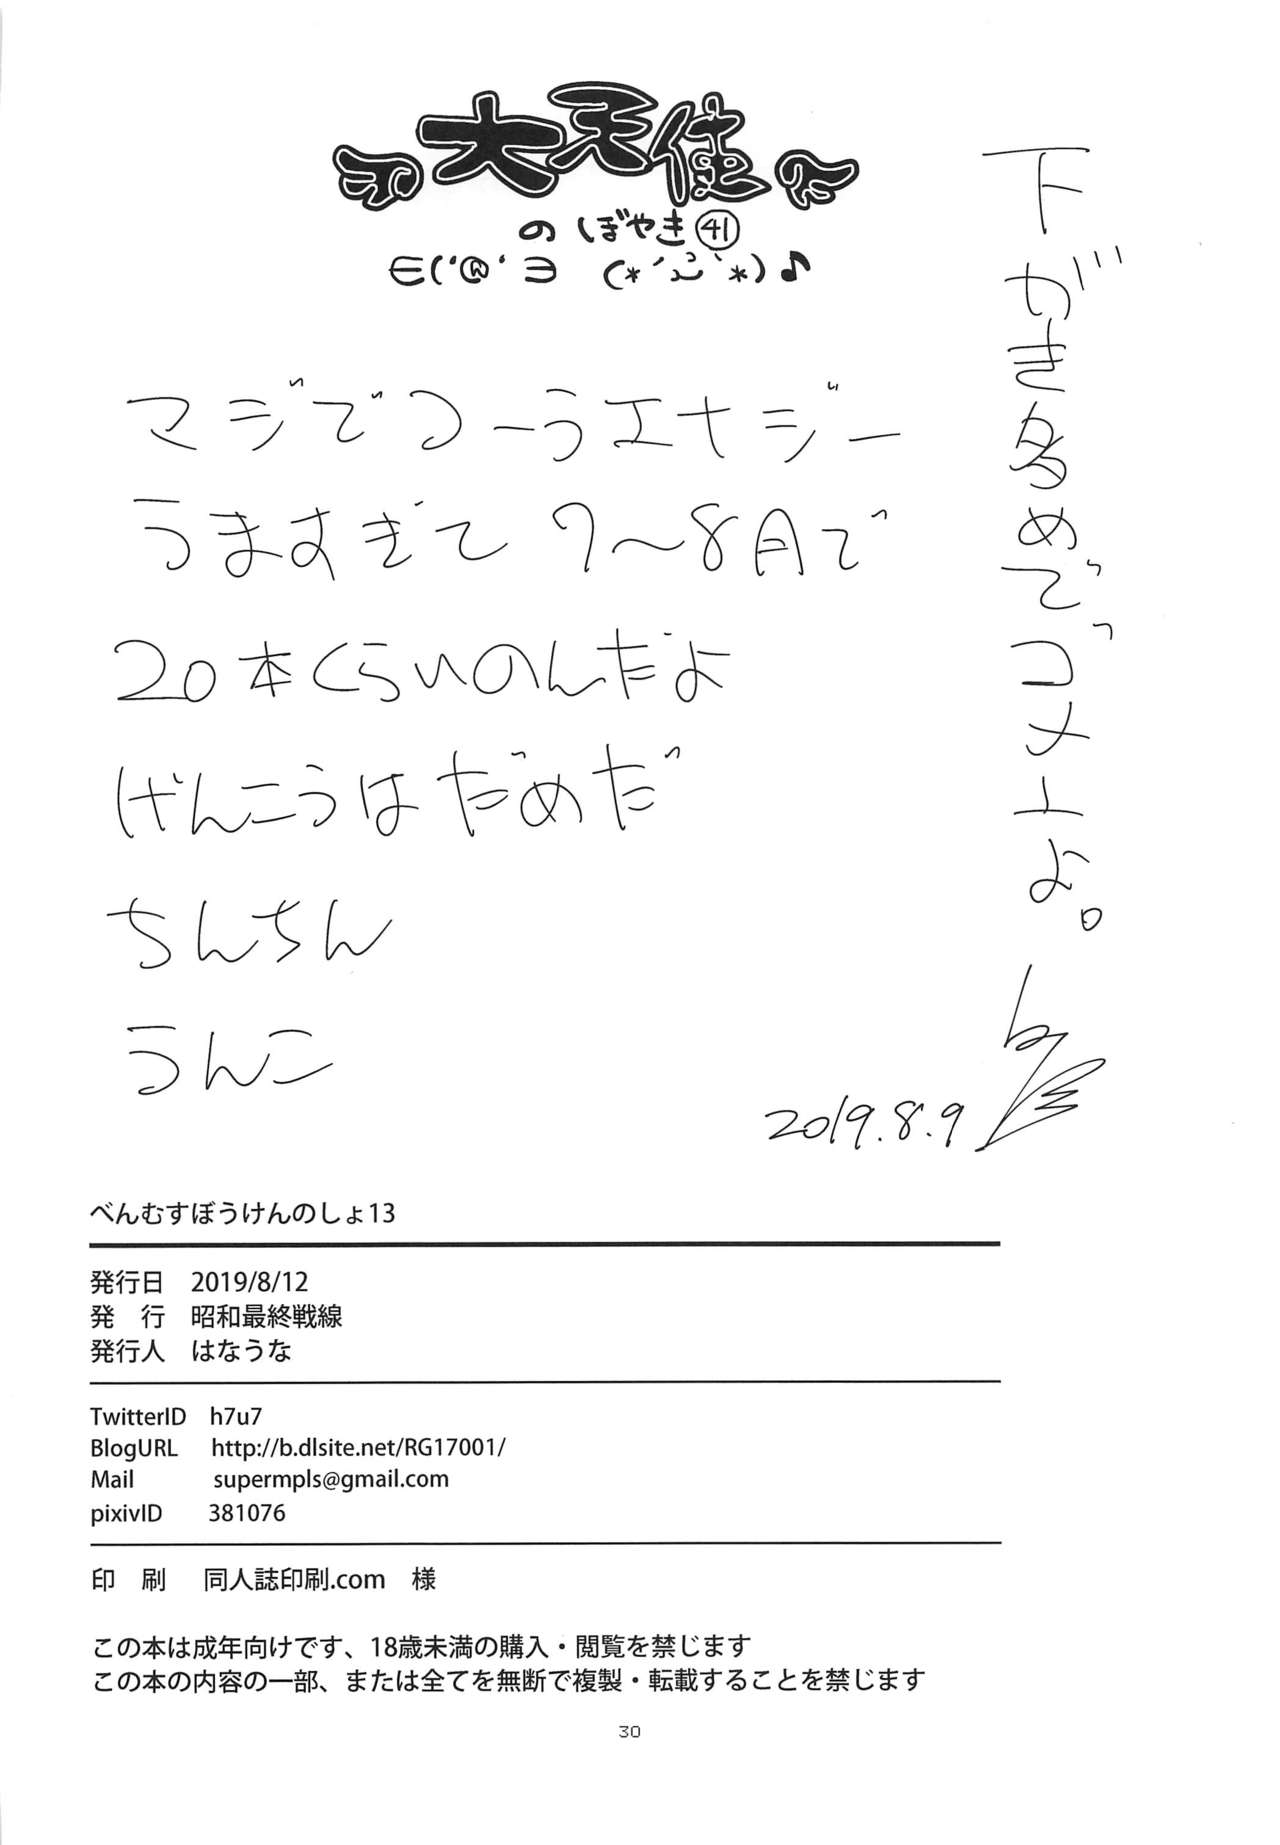 大天使
のぼやき㊶
∈('@'∋ (*´ω`*)♪
下がき多めでゴメーよ。
マジでつーうエナジー
うますぎて 7〜8月で
20本くらいのんだよ
げんこうはだめだ
ちんちん
うんこ
2019.8.9
べんむすぼうけんのしょ13
発行日 2019/8/12
発 行 昭和最終戦線
発行人 はなうな
TwitterID h7u7
BlogURL http://b.dlsite.net/RG17001/
Mail supermpls@gmail.com
pixivID 381076
印 刷 同人誌印刷.com 様
この本は成年向けです、18歳未満の購入・閲覧を禁じます
この本の内容の一部、または全てを無断で複製・転載することを禁じます
30